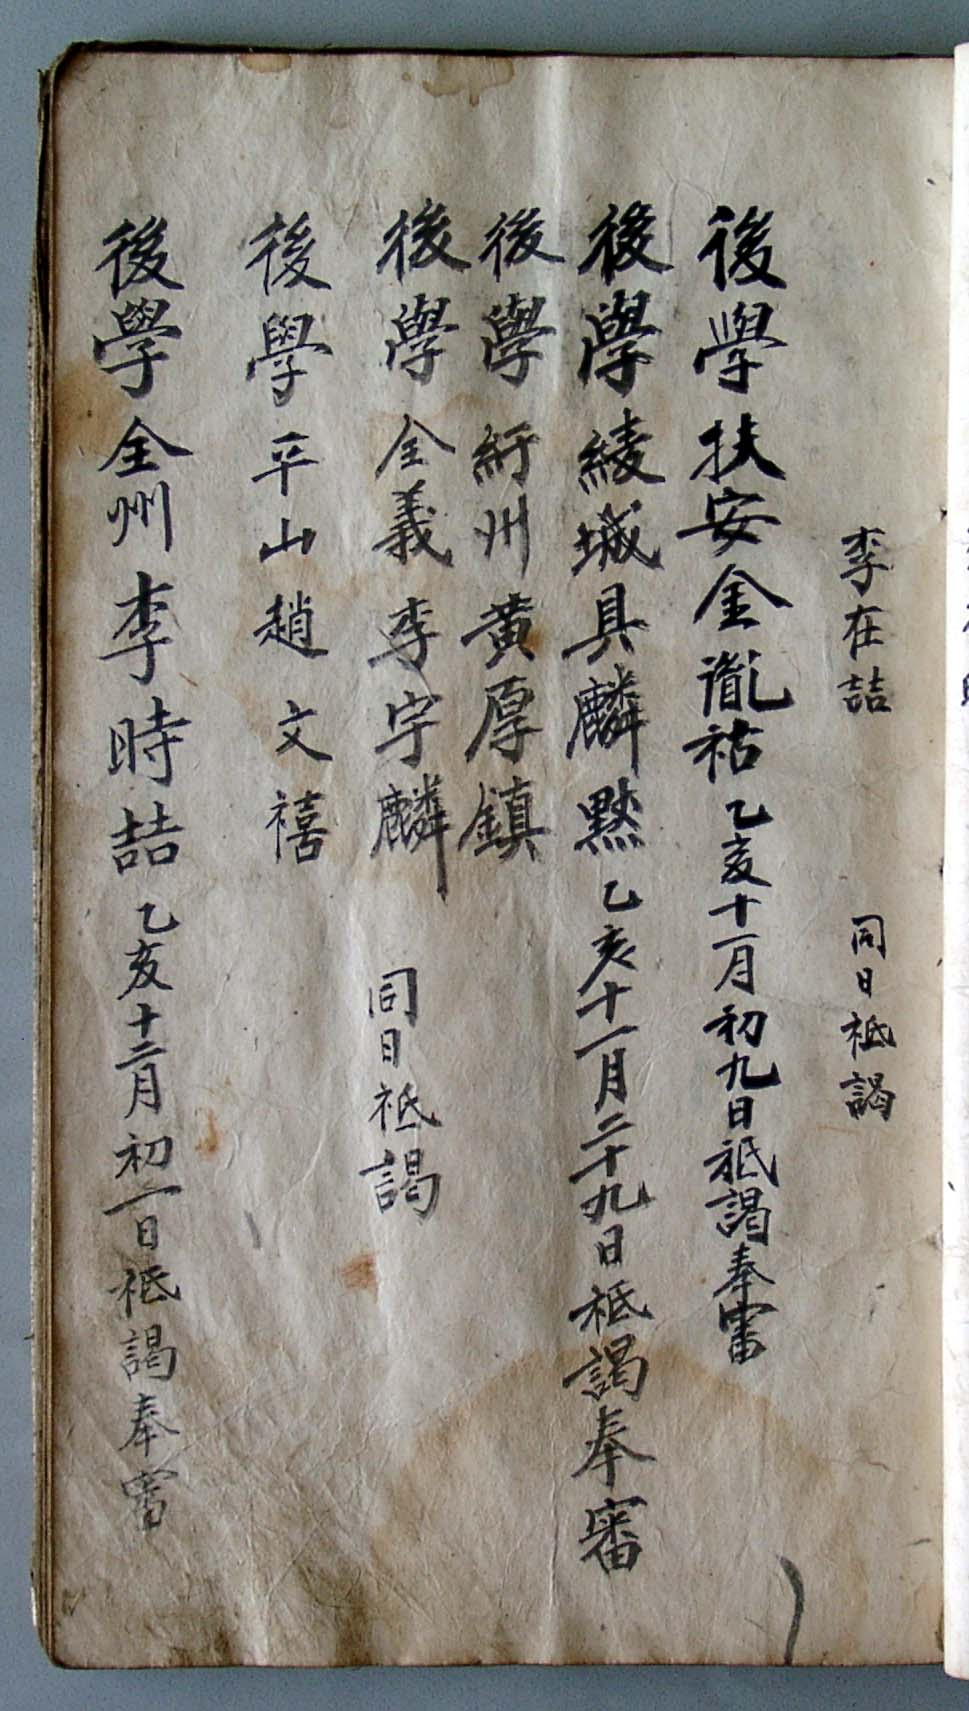 李在喆 同日祗謁
後學扶安金胤祜乙亥十一月初九日祗謁奉審
後學綾城具麟黙乙亥十一月二十九日祗謁奉審
後學紆州黄厚鎮
後學全義李宇麟 同日祗謁
後學平山趙文禧
後學全州李時喆乙亥十二月初一日祗謁奉審